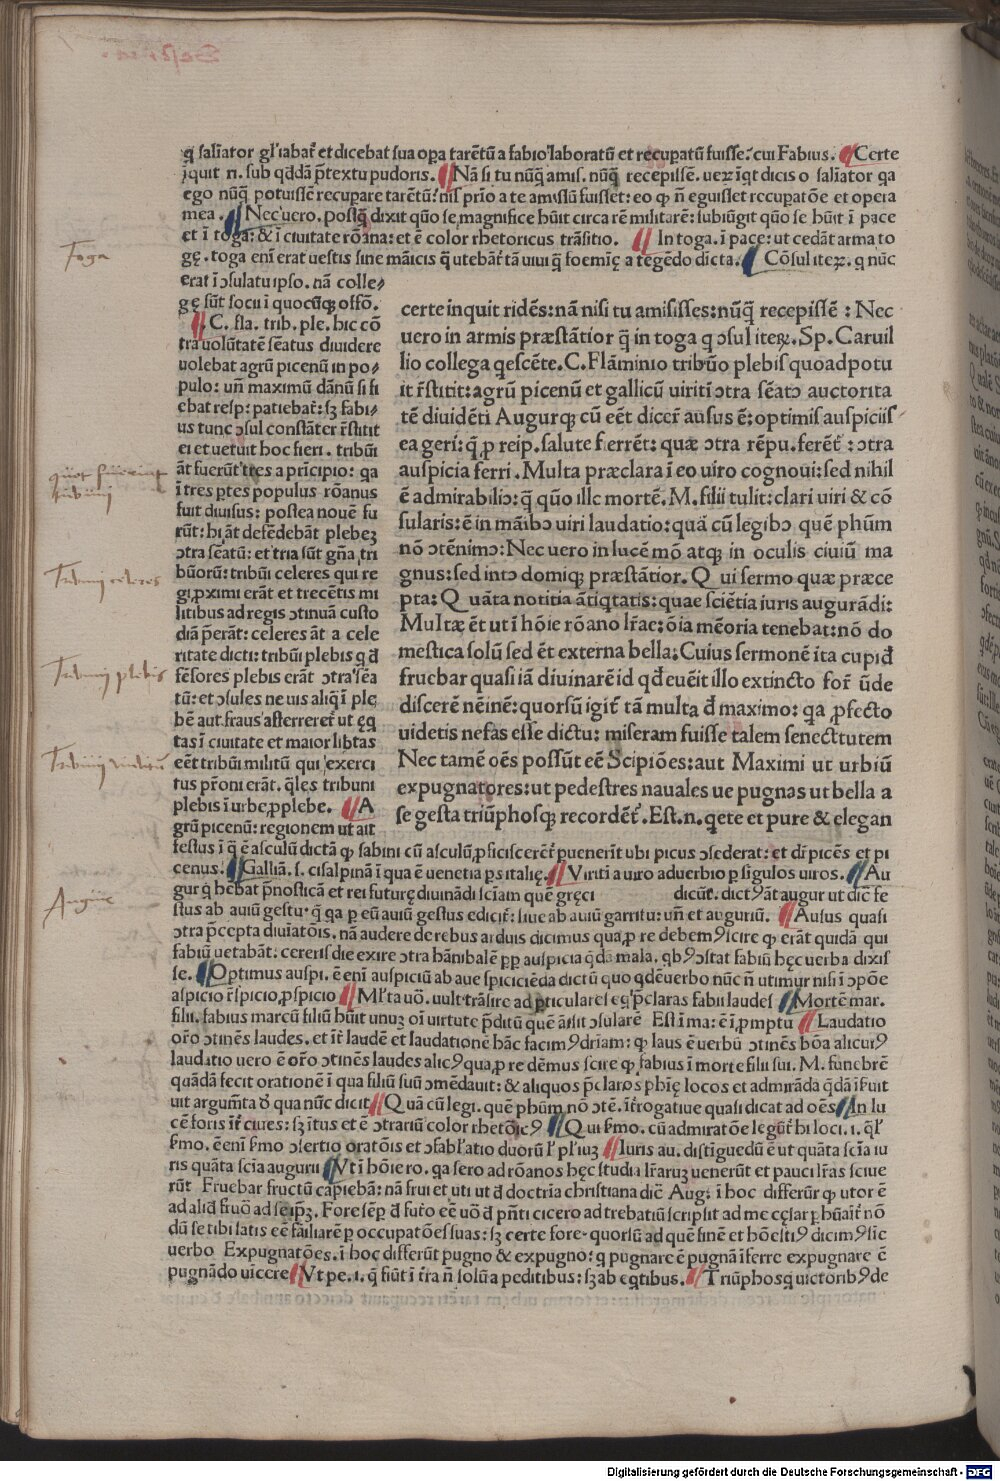 q̃ saliator gl'iabat̃ et dicebat sua opa tarētū a fabio laboratū et recupatū fuisse: cui Fabius. Certe
iquit n̄. sub qddā p̄textu pudoris. Nā si tu nūq̃ amis. nūq̃ recepissē. ueꝝ iqt dicis o saliator qa
ego nūq̃ potuissē recupare tarētū: nis prio a te amissū fuisset: eo ꝙ n̄ eguisset recupatōe et opera
mea. Nec uero. postq̃ dixit quō se magnifice hūit circa rē militarē: subiūgit quō se hūit ī pace
et ī toga: & ī ciuitate rōana: et ē color rhetoricus trāsitio. In toga. ī pace: ut cedāt arma to
gę. toga enī erat uestis sine māicis q̃ utebāt̃ tā uiui q̃ foemię a tegēdo dicta. Cōsul iteꝝ. q nūc
erat ī ɔsulatu ipso. nā colle
gę sūt socii ī quocūqꝫ offō.
C. fla. trib. ple. hic cō
tra uolūtatē sēatus diuidere
uolebat agrū picenū in po
pulo: un̄ maximū dānū si fi
ebat resp: patiebat̃: sꝫ fabi
us tunc ɔsul constāter r̄stitit
ei et uetuit hoc fieri. tribūi
āt fuerūt tres a prīcipio: qa
ī tres ptes populus rōanus
fuit diuisus: postea nouē fu
rūt: hi āt defēdebāt plebeꝫ
ɔtra sēatū: et tria sūt gn̄a tri
būorū: tribūi celeres qui re
gi ꝓximi erāt et trecētis mi
litibus ad regis ɔtinuā custo
diā p̄erāt: celeres āt a cele
ritate dicti: tribūi plebis q đ
fēsores plebis erāt ɔtra sēa
tū: et ɔsules ne uis aliq̄ ī ple
bē aut fraus afferreret̃ ut ęq
tas ī ciuitate et maior lib̄tas
eēt tribūi militū qui exerci
tus prōni erāt. q̄les tribuni
plebis ī urbe ꝓ plebe. A
grū picenū: regionem ut ait
certe inquit ridēs: nā nisi tu amisisses: nūq̃ recepissē: Nec
uero in armis præstātior q̃ in toga q ɔsul iteꝝ. Sp. Caruil
lio collega qescēte. C. Flāminio tribūo plebis quoad potu
it r̄stitit: agrū picenū et gallicū uiriti ɔtra sēatɔ auctorita
tē diuidēti Augurqꝫ cū eēt dicer̄ ausus ē: optimis auspiciis
ea geri: q̄ ꝓ reip. salute fierrēt: quæ ɔtra rēpu. ferēt̃: ɔtra
auspicia ferri. Multa præclara ī eo uiro cognoui: sed nihil
ē admirabiliɔ: q̄ quō ille mortē. M. filii tulit: clari uiri & cō
sularis: ē in māibɔ uiri laudatio: quā cū legibɔ quē phūm
nō ɔtēnimɔ: Nec uero in lucē mō atqꝫ in oculis ciuiū ma
gnus: sed intɔ domiqꝫ præstātior. Qui sermo quæ præce
pta: Quāta notitia ātiqtatis: quae sciētia iuris augurādi:
Multæ ēt ut ī hōie rōano lr̄ae: ōia mēoria tenebat: nō do
mestica solū sed ēt externa bella: Cuius sermonē ita cupiđ
fruebar quasi iā diuinarē id qđ euēit illo extincto for̄ ūde
discerē nēinē: quorsū igit̃ tā multa đ maximo: qa ꝓfecto
uidetis nefas esse dictu: miseram fuisse talem senecttutem
Nec tamē oēs possūt eē Scipiōes: aut Maximi ut urbiū
expugnatores: ut pedestres nauales ue pugnas ut bella a
se gesta triūphosqꝫ recordēt̃. Est. n. qete et pure & elegan
festus ī q̄ ē asculū dictā ꝙ sabini cū asculū ꝓficiscerēt̃ puenerīt ubi picus ɔsederat: et dr̄ picēs et pi
cenus. Galliā. s. cisalpinā ī qua ē uenetia ps italię. Viriti a uiro aduerbio p sīgulos uiros. Au
gur q̃ hēbat p̄nosticā et rei futurę diuinādi sciam quē gręci dicūt. dictꝰ āt augur ut dic̄ fe
stus ab auiū gestu. q̄ qa p eū auiū gestus edicit̃: siue ab auiū garritu: un̄ et auguriū. Ausus quasi
ɔtra p̄cepta diuiatōis. nā audere de rebus arduis dicimus qua ꝓ re debemꝰ scire ꝙ erāt quidā qui
fabiū uetabāt: cereris die exire ɔtra hānibalē ꝓp auspicia q̄dā mala. qbꝰ ɔstat fabiū hęc uerba dixis
se. Optimus auspi. ē enī auspiciū ab aue spiciciēda dictū quo qdē uerbo nūc n̄ utimur nisi ī ɔpōe
aspicio r̄spicio ꝓspicio Ml'ta uō. uult trāsire ad pticulares eq' p̄claras fabii laudes Mortē mar.
filii. fabius marcū filiū hūit unuꝫ oī uirtute p̄ditū quē āisit ɔsularē Est ī ma: ē ī ꝓmptu Laudatio
or̄o ɔtinēs laudes. et īt̃ laudē et laudationē hāc facimꝰ dr̄iam: ꝙ laus ē uerbū ɔtinēs bōa alicurꝰ
laudatio uero ē or̄o ɔtinēs laudes alicꝰ qua ꝓ re dēmus scire ꝙ fabius ī morte filii sui. M. funebrē
quādā fecit orationē ī qua filiū suū ɔmēdauit: & aliquos p̄claros phię locos et admirāda q̄dā īfuit
uit argum̄ta đ qua nūc dicit Quā cū legi. quē phūm nō ɔtē. īt̃rogatiue quasi dicat ad oēs In lu
cē foris īt̃ ciues: sꝫ ītus et ē ɔtrariū color rhetōicꝰ Qui s̄mo. cū admiratōe legūt̃ hi loci. i. q̄l'
s̄mo. ē enī s̄mo ɔsertio oratōis et ɔfabl'atio duorū l' pl'iuꝫ Iuris au. distīguedū ē ut quāta scīa iu
ris quāta scīa augurii Vt ī hōie ro. qa sero ad rōanos hęc studia lr̄aruꝫ uenerūt et pauci lr̄as sciue
rūt Fruebar fructū capiebā: nā frui et uti ut đ doctrīa christiana dic̄ Aug: ī hoc differūr ꝙ utor ē
ad aliđ fruō ad seipꝫ. Fore sēp đ fut̄o eē uō đ p̄nti cicero ad trebatiū scripsit ad me cęsar p hūait̃ nō
dū se tibi satis eē fāiliarē p occupatōes suas: sꝫ certe fore. quorsū ad quē finē et hōestiꝰ dicimꝰ sic
uerbo Expugnatōes. ī hoc differūt pugno & expugno: q pugnare ē pugnā īferre expugnare ē
pugnādo uīcere Vt pe. i. q̄ fiūt ī t̄ra n̄ solū a peditibus: sꝫ ab eqtibus. Triūphosqꝫ uictoribꝰ de
Toga
Tribuni celeres
Tribuni plebis
Tribuni militū
Digitalisierung gefördert durch die Deutsche Forschungsgemeinschaft - DFG